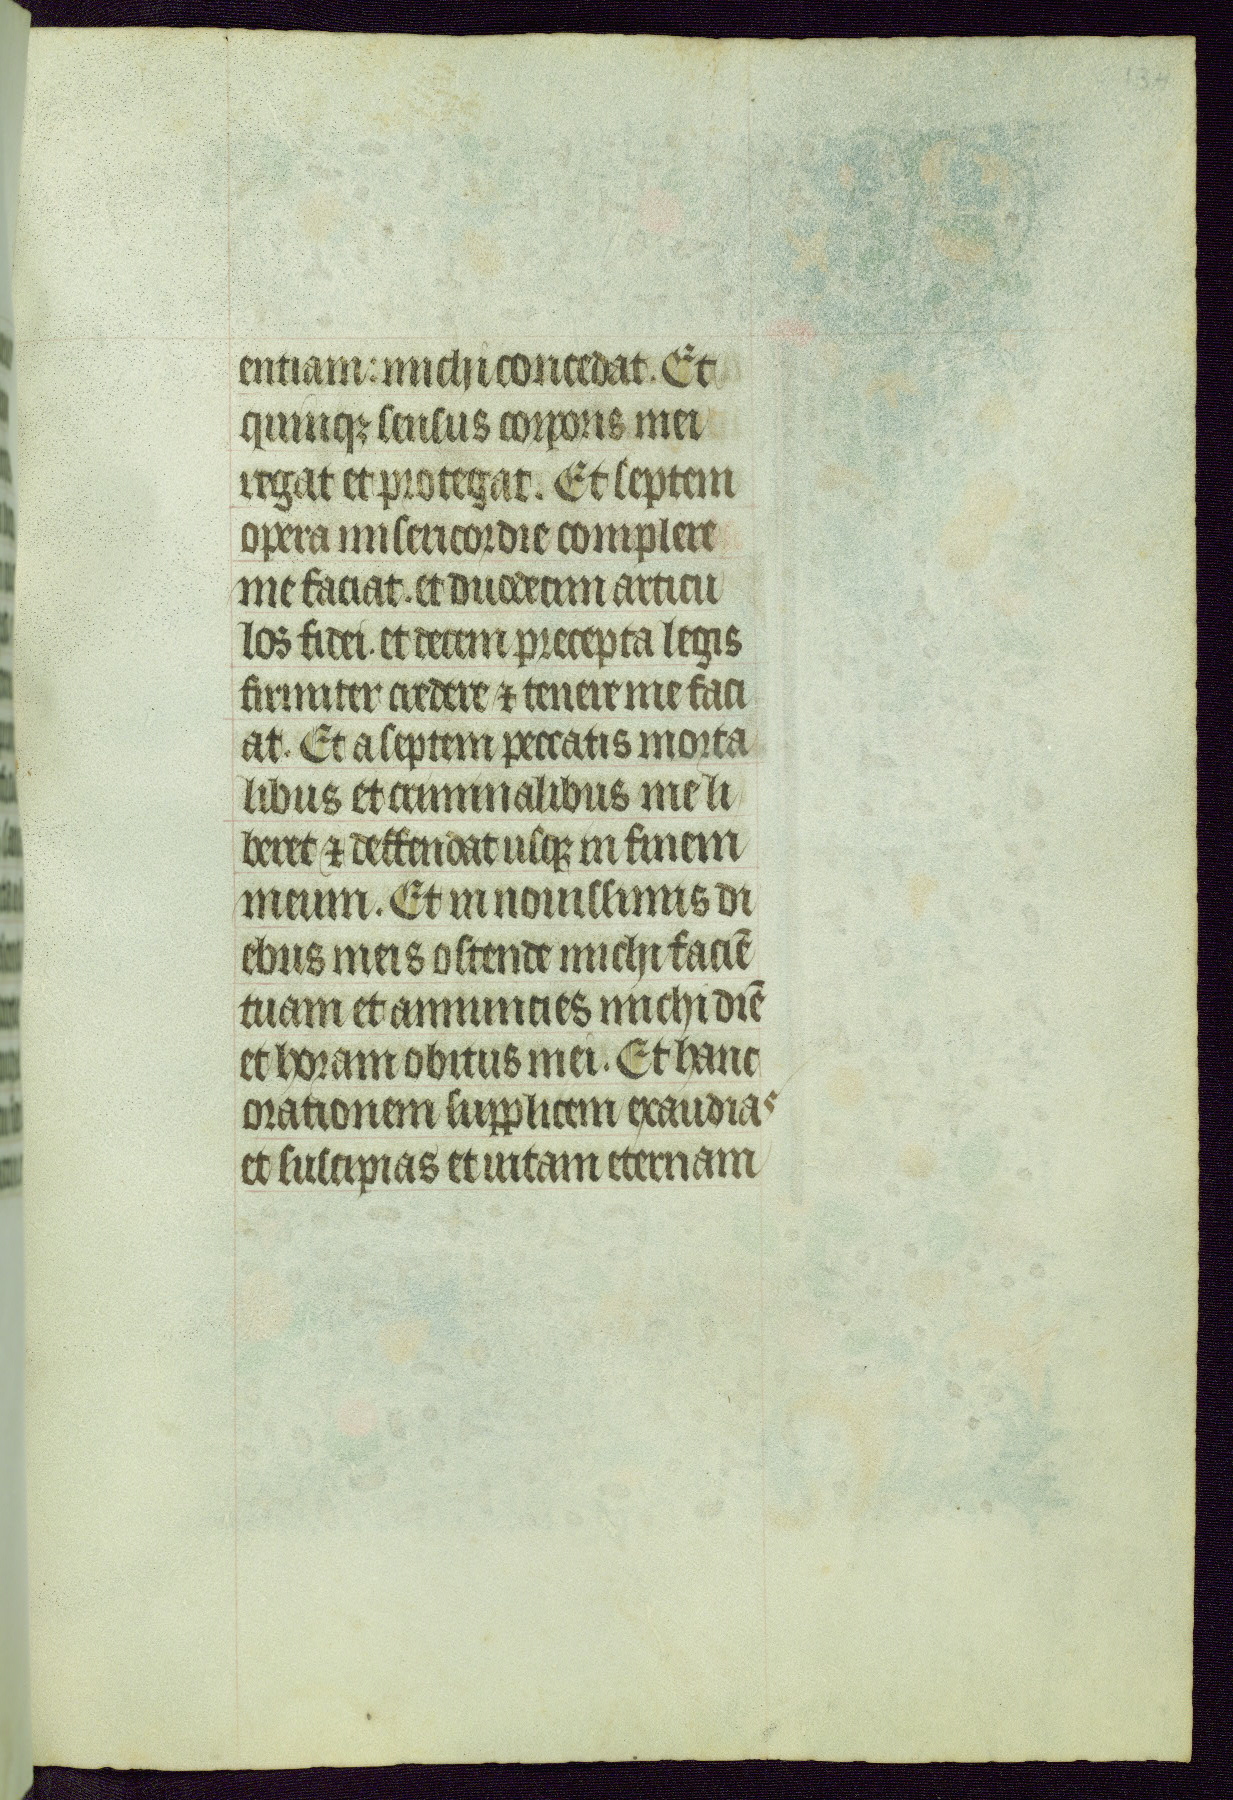 134
entiam: michi concedat. Et
quinqꝫ sensus corporis mei
regat et protegat. Et septem
opera misericordie complere
me faciat. et duodecim articu
los fidei. et decem precepta legis
firmiter credere ⁊ tenere me faci
at. Et a septem peccatis morta
libus et criminalibus me li
beret ⁊ deffendat usqꝫ in finem
meum. Et in nouissimis di
ebus meis ostende michi faciē
tuam et annuncies michi diē
et horam obitus mei. Et hanc
orationem supplicem exaudias
et suscipias et uitam eternam